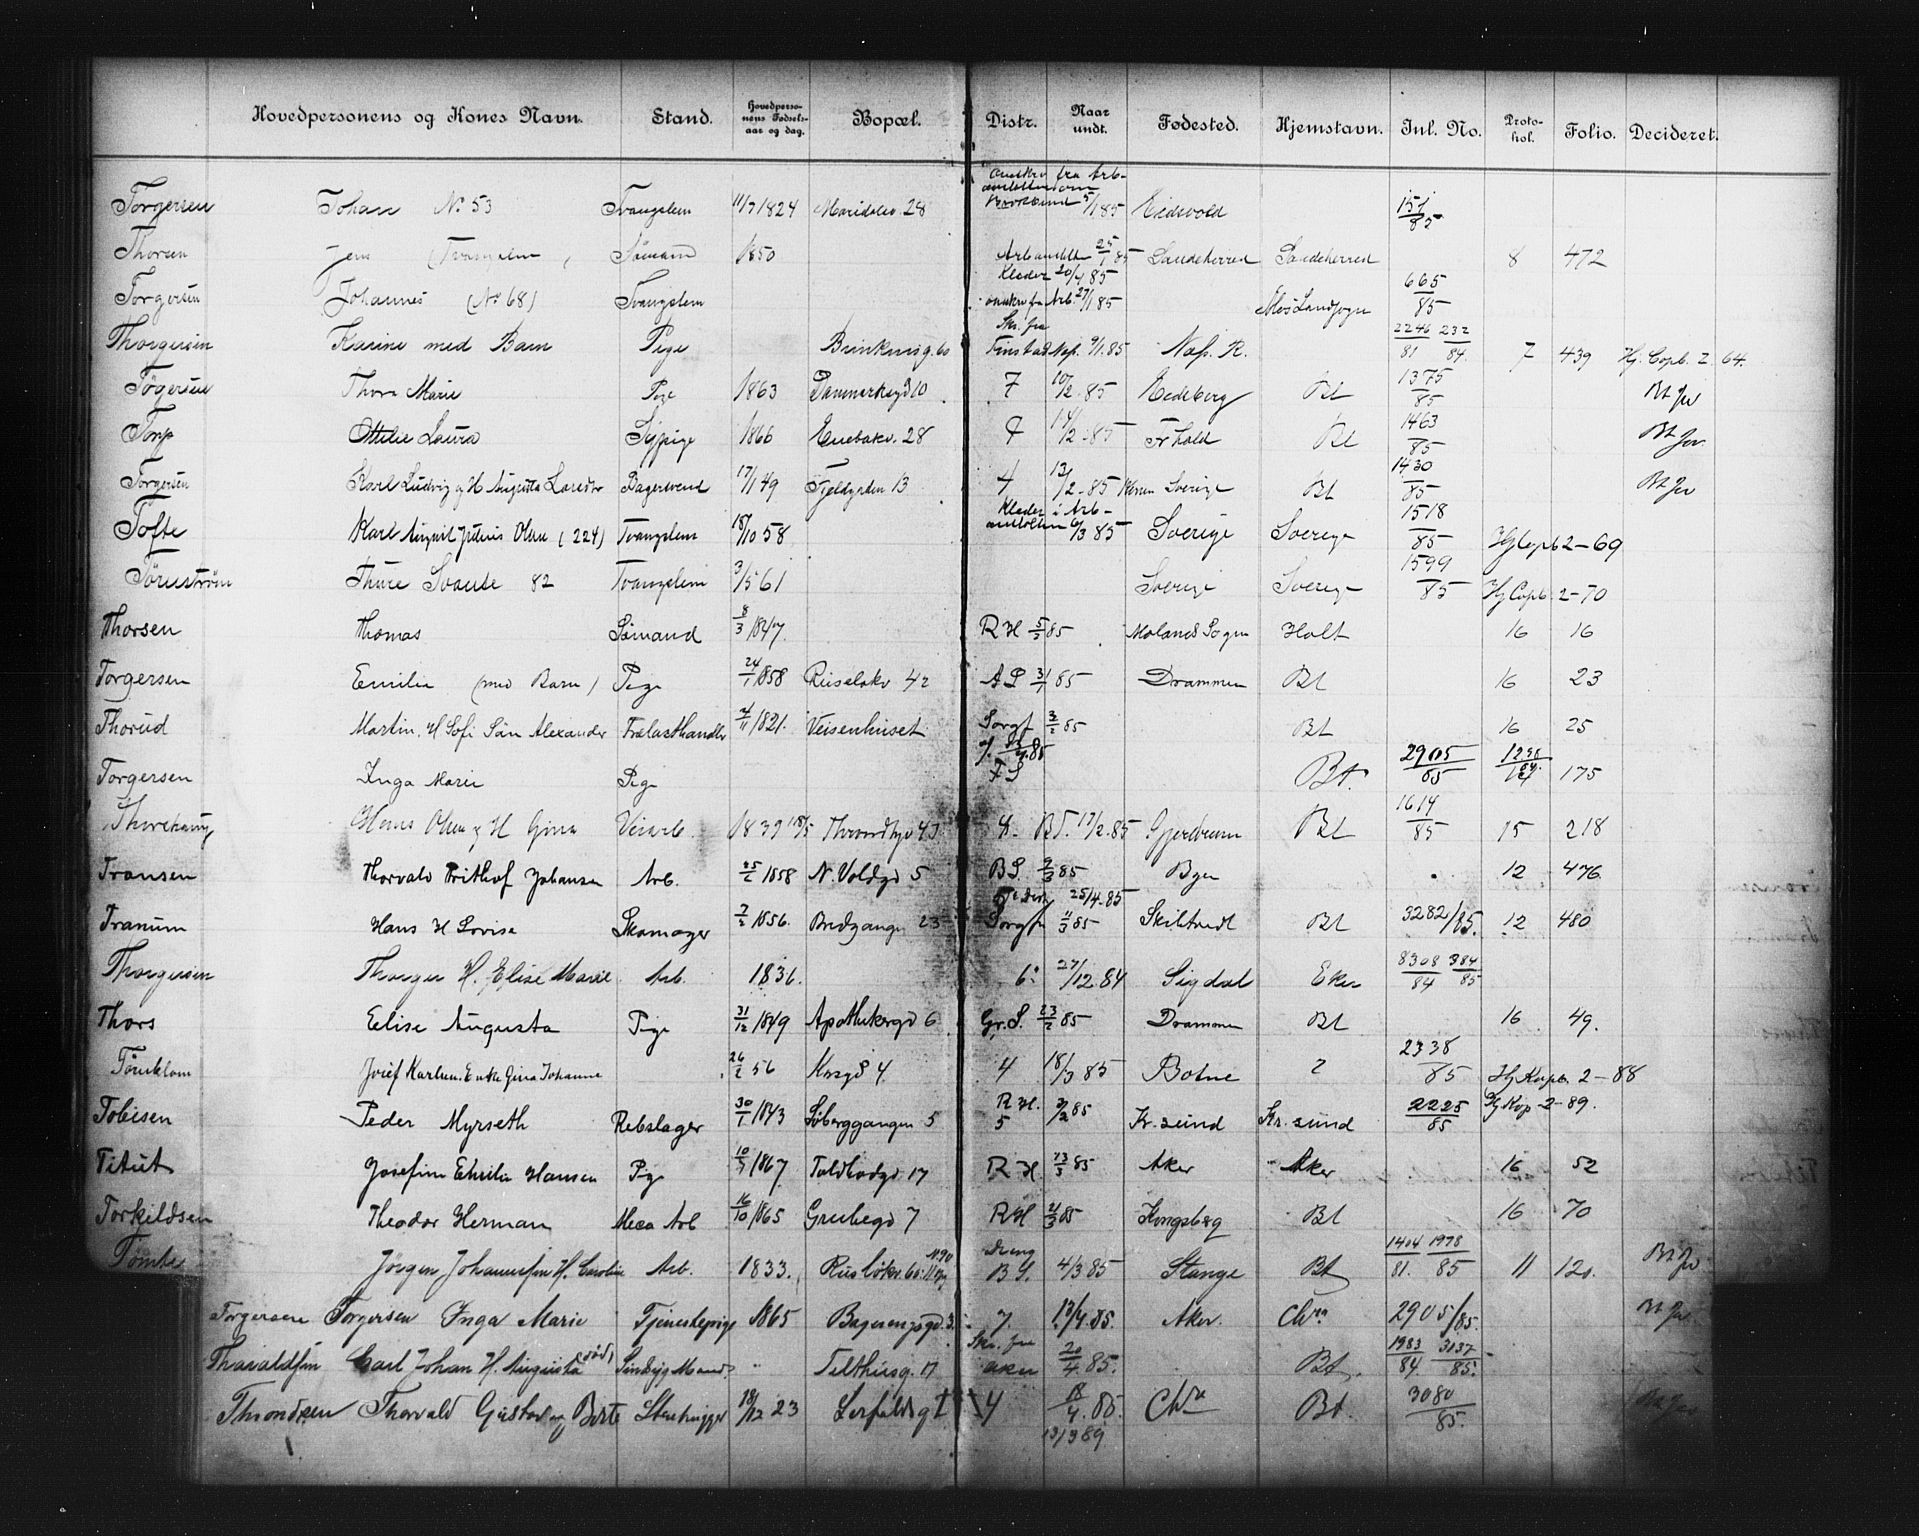 Hovedpersonens og Kones Navn. Stand. Hovedpersonens Fødselsaar og dag. Bopæl. Distr. Naar undt. Fødested. Hjemstavn. Inl. No. Protokol. Folio. Decideret.
Torgersen Johan No 53 Tvangslem 11/7 1824 Maridalsv. 28 5/1 85 Eidsvold 151/85
Thorsen Jens (Tvangslem Sømand 1850 25/1 85 Sandeherred Sandeherred 8 472
Torgersen Johannes (No 68) Tvangslem 27/1 85 665/85
Thorgersen Karine med Barn Pige Skr. fra 9/1.85 Næs. R. 2246/81 232/84. 7 439 Hj. Copb. 2 64.
Thora Marie Pige 1863 Danmarksgd 10 7 10/2.85 Bt 1375/85 Bt Jv
Torp Ottilie Laura Sypige 1866 Enebakv. 28 7 14/2.85 Fr hald Bt 1463/85 Bt Jv.
Torgersen Karl Ludvig og H Augusta Bagersvend 17/1 49 Fjeldgaden 13 4 13/2.85 Sverige Bt 1430/85 Bt Jv
Tofte Karl August Olsen (224) Tvangslem 18/10 58 6/3 85 Sverige Sverige 1518/85 Hj Copb 2-69
Thure Svante 82 Tvangslem 3/5 61 Sverige Sverige 1599/85 Hj Copb. 2-70
Thorsen Thomas Sømand 8/3 1847. R H 5/2 85 Molands Sogn Holt 16 16
Torgersen Emilie (med Barn) Pige 24/1 1858 Ruseløkv 42 A P 3/1 85 Drammen Bt 16 23
Thorud Martin, H Sofi Alexander 4/11 1821. Veisenhuset Sorgf 3/2 85 Bt 16 25
Torgersen Inga Marie Pige F S Bt. 2905/85 175
Hans Olsen og H Gina Veiarb. 1839 18/5 8. Bt. 17/2.85 Gjerdrum Bt 1614/85 15 218
Transen Thorvald Frithof Johansen Arb. 25/2 1858 N. Voldgd 5 B S. 2/3 85 Byen 12 476
Tranum Hans H Lovise Skomager 7/2 1856. Bredgangen 23 25/4.85 Sorgf 11/3 85 Bt 3282/85. 12 480
Thorgersen Thorger H. Elise Marie Arb. 1836. 6. 27/12.84 Sigdal Eker 8308/84 384/85
Thors Elise Augusta Pige 31/12 1849 Apothekergd 6 Gr. S. 23/2 85 Drammen Bt 16 49.
Josef Karlsen. Enke Gina Johanne 26/2 56 Kirkgd 4. 4 18/3 85 Botne ? 2338/85 Hj Kopb. 2-88
Tobisen Peder Myrseth Rebslager 30/1 1843 Søberggangen 5 R H. 5 2/2 85 Kr. sund Kr. sund 2225/85 Hj Kop 2-89.
Titut Josefine Emilie Hansen Pige 10/7 1867. Toldbodgd. 17 R H. 13/3 85 Aker Aker 16 52
Torkildsen Theodor Herman Arb 16/10 1865 Grubegd 7 R H 21/3 85 Kongsberg Bt 16 70
Tømte Jørgen Johannesen H. Caroline Arb. 1833. B S. 4/3 85 Stange Bt 1404/81. 1978/85 11 120. Bt Jv
Torgersen Torgersen Inga Marie Tjenestepige 1865 Bagerengsgd. 3. 7. 13/4.85. Aker. Chra 2905/85. Bt Jv.
Thorvaldsen Carl Johan H. Augusta (død) Telthusg. 17 Skr. fra Aker 20/4.85. Bt 1983/84 3037/85.
Throndsen Thorvald Gustav og Berte Stenhugger 18/12 23 4 18/4.85. Chra Bt. 3080/85. Bt Jv
13/3 89